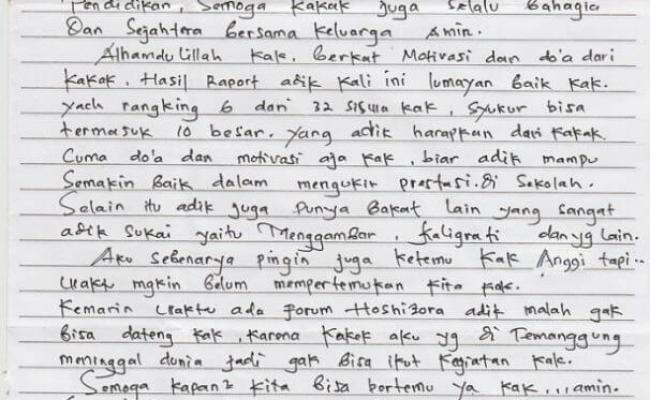 Pendidikan, Semoga kakak juga selalu Bahagia
Dan Sejahtera Bersama keluarga Amin.
Alhamdulillah kak, Berkat Motivasi dan do'a dari
kakak. Hasil Raport adik kali ini lumayan Baik kak.
yach rangking 6 dari 32 siswa kak, syukur bisa
termasuk 10 besar. yang adik harapkan dari kakak
Cuma do'a dan motivasi aja kak, biar adik mampu
Semakin Baik dalam mengukir prestasi di Sekolah.
Selain itu adik juga Punya Bakat lain yang sangat
adik sukai yaitu Menggambar, Kaligrafi dan yg lain.
Aku sebenarya pingin juga ketemu kak Anggi tapi..
waktu mgkin Belum mempertemukan kita kak.
Kemarin waktu ada forum Hoshizora adik malah gak
Bisa dateng kak, karena kakek aku yg di Temanggung
meninggal dunia jadi gak Bisa ikut Kegiatan kak.
Semoga kapan2 kita Bisa bertemu ya kak... amin.